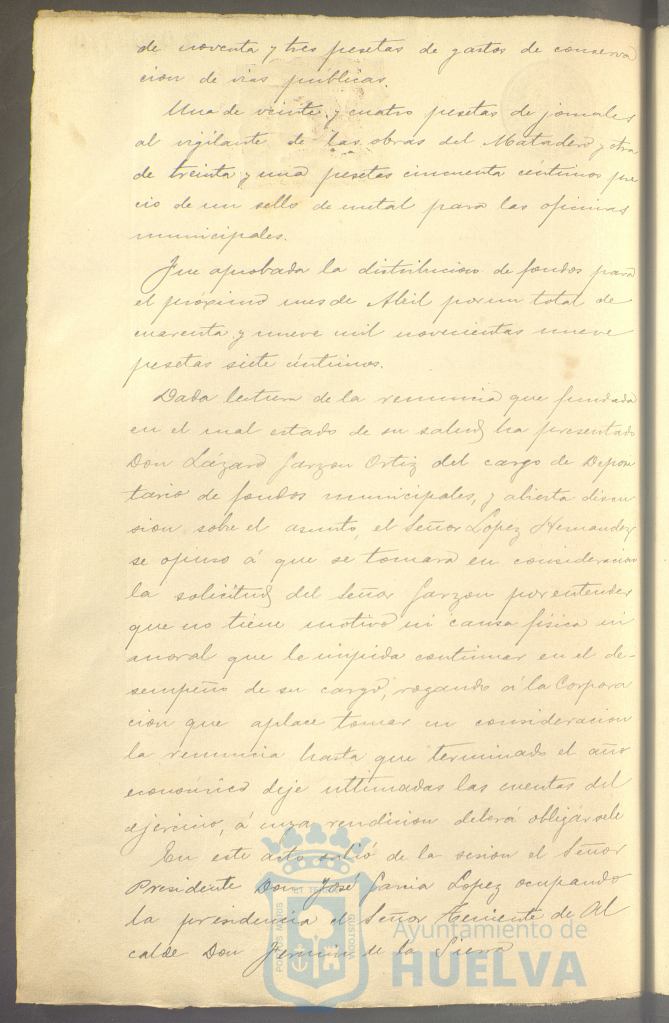 de noventa y tres pesetas de gastos de conserva
cion de vias públicas.
Una de veinte y cuatro pesetas de jornales
al vigilante de las obras del Matadero y otra
de treinta y una pesetas cincuenta céntimos pre
cio de un sello de metal para las oficinas
municipales.
Fue aprobada la distribucion de fondos para
el próximo mes de Abril por un total de
cuarenta y nueve mil novecientas nueve
pesetas siete céntimos.
Dada lectura de la renuncia que fundada
en el mal estado de su salud ha presentado
Don Lázaro Garzon Ortiz del cargo de Deposi
tario de fondos municipales, y abierta discu
sion sobre el asunto, el Señor Lopez Hernandez
se opuso á que se tomara en consideracion
la solicitud del Señor Garzon por entender
que no tiene motivo ni causa fisica ni
moral que le impida continuar en el de-
sempeño de su cargo, rogando á la Corpora
cion que aplace tomar en consideracion
la renuncia hasta que terminado el año
económico deje ultimadas las cuentas del
ejercicio, á cuya rendicion deberá obligársele
En este acto salió de la sesion el Señor
Presidente Don José Garcia Lopez ocupando
la presidencia el Señor Teniente de Al
calde Don Fermin de la Sierra
Ayuntamiento de
HUELVA
PORTUS MARIS ET TERRAE CUSTODIA